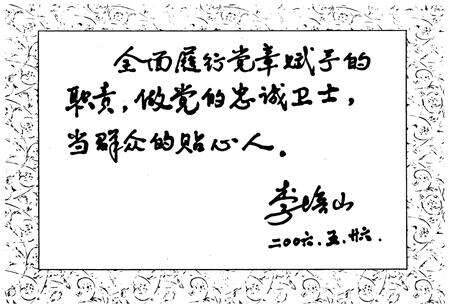 全面履行党章赋予的
职责，做党的忠诚卫士，
当群众的贴心人。
李培山
二〇〇六.五.廿六.